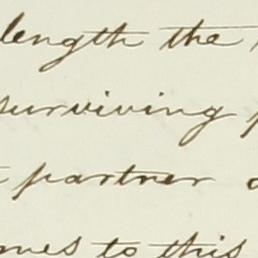 length the
surviving
partner
to this